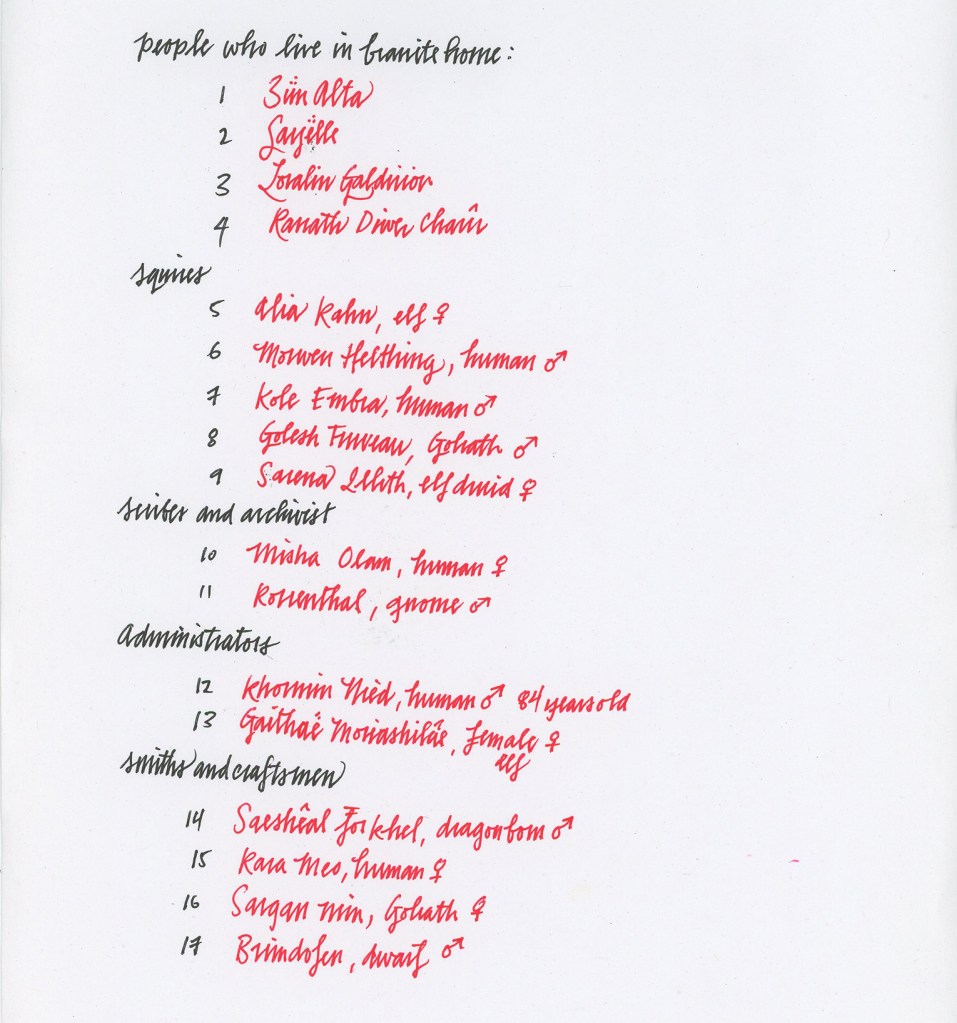 people who live in Granite home:
1 Zïm Alta
2 Sayëlle
3 Loralin Galdinion
4 Ranath Diwen Chaîn
squires
5 Alia Kahn, elf ♀
6 Morwen Helthing, human ♂
7 Kole Embra, human ♂
8 Golesh Goliath ♂
9 Sarena elf druid ♀
scribes and archivist
10 Misha Olam, human ♀
11 Rossenthal, gnome ♂
Administrators
12 Khormin Nièd, human ♂ 84 years old
13 Gaithaë female ♀
elf
smiths and craftsmen
14 Saeshêal dragonborn ♂
15 Kara Meo, human ♀
16 Sargan min, Goliath ♀
17 Brimdofen, dwarf ♂